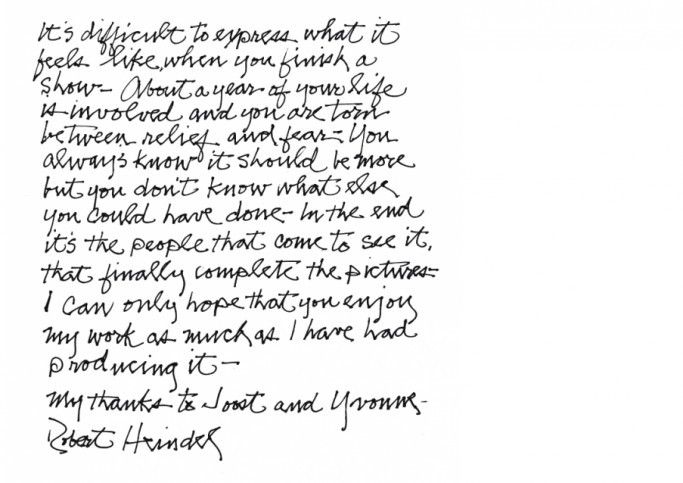 It's difficult to express what it
feels like, when you finish a
show- About a year of your life
is involved and you are torn
between relief and fear- You
always know it should be more
but you don't know what else
you could have done- In the end
it's the people that come to see it,
that finally complete the pictures-
I can only hope that you enjoy
my work as much as I have had
producing it-
My thanks to Joost and Yvonne-
Robert Heindel